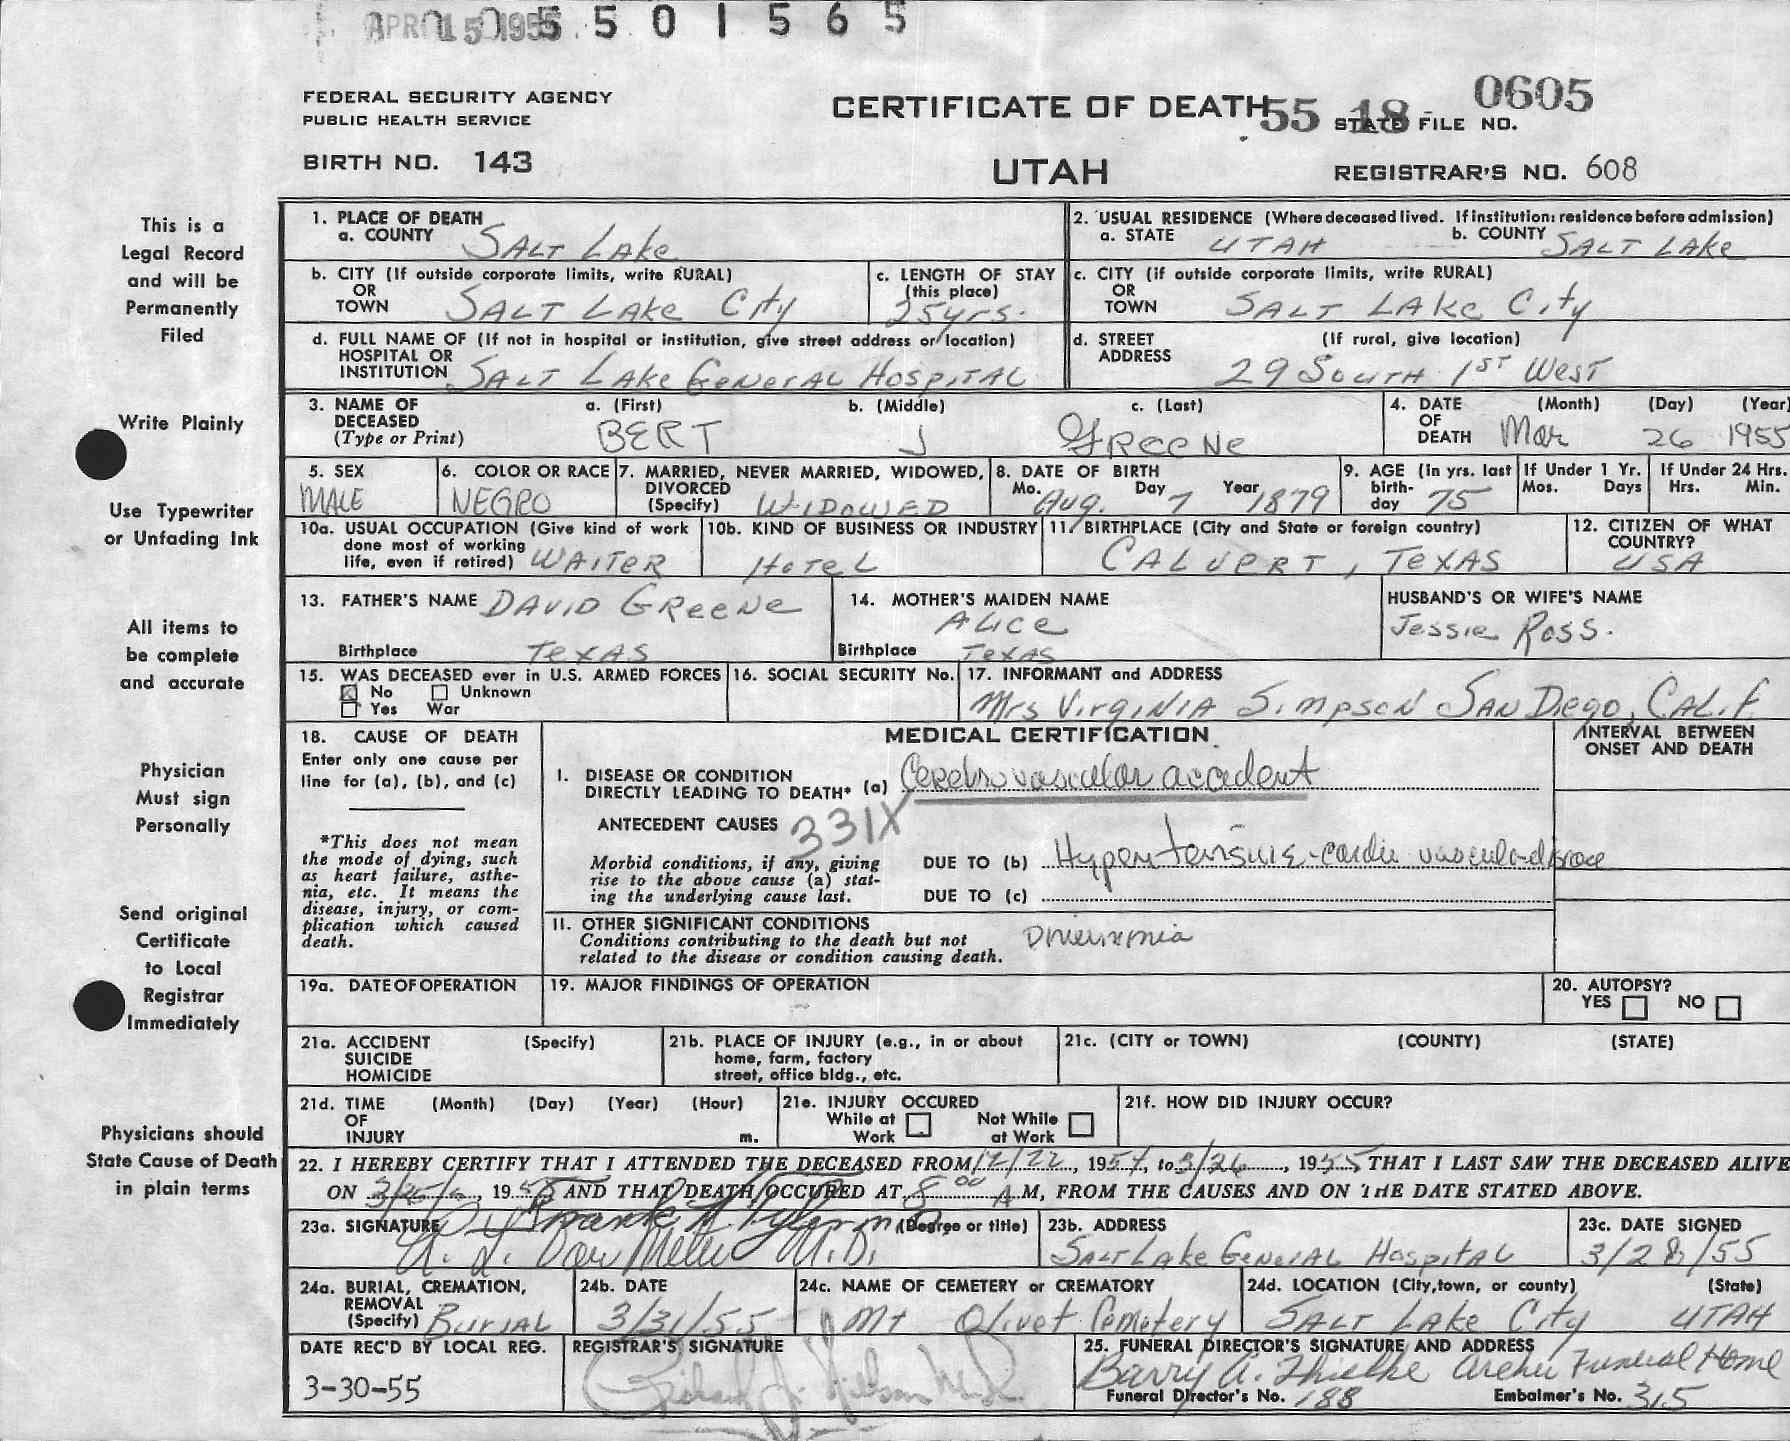 APR 15 1955 5501565
FEDERAL SECURITY AGENCY
PUBLIC HEALTH SERVICE
BIRTH NO. 143
CERTIFICATE OF DEATH
UTAH
55 18 - 0605
STATE FILE NO.
REGISTRAR'S NO. 608
This is a
Legal Record
and will be
Permanently
Filed
Write Plainly
Use Typewriter
or Unfading Ink
All items to
be complete
and accurate
Physician
Must sign
Personally
Send original
Certificate
to Local
Registrar
Immediately
Physicians should
State Cause of Death
in plain terms
1. PLACE OF DEATH
a. COUNTY SALT LAKE
2. USUAL RESIDENCE (Where deceased lived. If institution: residence before admission)
a. STATE UTAH b. COUNTY SALT LAKE
b. CITY (If outside corporate limits, write RURAL)
OR
TOWN SALT LAKE City
c. LENGTH OF STAY
(this place)
25yrs.
c. CITY (if outside corporate limits, write RURAL)
OR
TOWN SALT LAKE City
d. FULL NAME OF (If not in hospital or institution, give street address or location)
HOSPITAL OR
INSTITUTION SALT LAKE GENERAL HOSPITAL
d. STREET (If rural, give location)
ADDRESS 29 SOUTH 1ST WEST
3. NAME OF a. (First) b. (Middle) c. (Last)
DECEASED
(Type or Print) BERT J GREENE
4. DATE (Month) (Day) (Year)
OF
DEATH Mar 26 1955
5. SEX
MALE
6. COLOR OR RACE
NEGRO
7. MARRIED, NEVER MARRIED, WIDOWED,
DIVORCED
(Specify) WIDOWED
8. DATE OF BIRTH
Mo. Day Year
Aug. 7 1879
9. AGE (In yrs. last
birth-
day 75
If Under 1 Yr.
Mos. Days
If Under 24 Hrs.
Hrs. Min.
10a. USUAL OCCUPATION (Give kind of work
done most of working
life, even if retired) WAITER
10b. KIND OF BUSINESS OR INDUSTRY
HOTEL
11. BIRTHPLACE (City and State or foreign country)
CALVERT, TEXAS
12. CITIZEN OF WHAT
COUNTRY?
USA
13. FATHER'S NAME DAVID GREENE
Birthplace TEXAS
14. MOTHER'S MAIDEN NAME
ALICE
Birthplace TEXAS
HUSBAND'S OR WIFE'S NAME
Jessie Ross.
15. WAS DECEASED ever in U.S. ARMED FORCES
No Unknown
Yes War
16. SOCIAL SECURITY No.
17. INFORMANT and ADDRESS
Mrs VIRGINIA SIMPSON SAN DIEGO, CALIF
18. CAUSE OF DEATH
Enter only one cause per
line for (a), (b), and (c)
*This does not mean
the mode of dying, such
as heart failure, asthe-
nia, etc. It means the
disease, injury, or com-
plication which caused
death.
MEDICAL CERTIFICATION
INTERVAL BETWEEN
ONSET AND DEATH
I. DISEASE OR CONDITION
DIRECTLY LEADING TO DEATH* (a) Cerebrovascular accident
ANTECEDENT CAUSES 331X
Morbid conditions, if any, giving
rise to the above cause (a) stat-
ing the underlying cause last.
DUE TO (b) Hypertensive-cardio vascular disease
DUE TO (c)
II. OTHER SIGNIFICANT CONDITIONS
Conditions contributing to the death but not
related to the disease or condition causing death.
pneumonia
19a. DATE OF OPERATION
19. MAJOR FINDINGS OF OPERATION
20. AUTOPSY?
YES NO
21a. ACCIDENT (Specify)
SUICIDE
HOMICIDE
21b. PLACE OF INJURY (e.g., in or about
home, farm, factory
street, office bldg., etc.
21c. (CITY or TOWN) (COUNTY) (STATE)
21d. TIME (Month) (Day) (Year) (Hour)
OF
INJURY m.
21e. INJURY OCCURED
While at Not While
Work at Work
21f. HOW DID INJURY OCCUR?
22. I HEREBY CERTIFY THAT I ATTENDED THE DECEASED FROM 12/22, 1954, to 3/26, 1955 THAT I LAST SAW THE DECEASED ALIVE
ON 3/26, 1955 AND THAT DEATH OCCURED AT 8 00 A M, FROM THE CAUSES AND ON THE DATE STATED ABOVE.
23a. SIGNATURE (Degree or title)
M.D.
23b. ADDRESS
SALT LAKE GENERAL HOSPITAL
23c. DATE SIGNED
3/28/55
24a. BURIAL, CREMATION,
REMOVAL
(Specify) BURIAL
24b. DATE
3/31/55
24c. NAME OF CEMETERY or CREMATORY
Mt Olivet Cemetery
24d. LOCATION (City, town, or county) (State)
SALT LAKE City UTAH
DATE REC'D BY LOCAL REG.
3-30-55
REGISTRAR'S SIGNATURE
25. FUNERAL DIRECTOR'S SIGNATURE AND ADDRESS
Barry A. Thielke Archer Funeral Home
Funeral Director's No. 188 Embalmer's No. 315